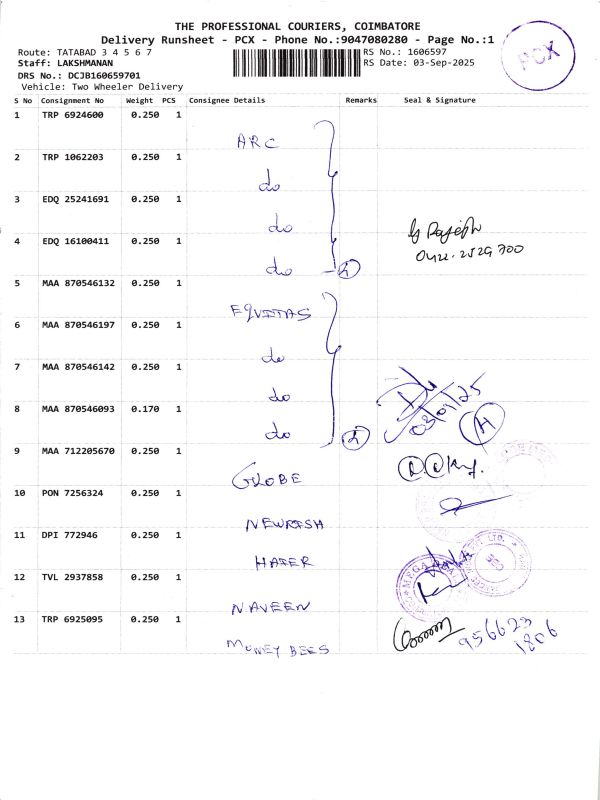 THE PROFESSIONAL COURIERS, COIMBATORE
Delivery Runsheet - PCX - Phone No.:9047080280 - Page No.:1
Route: TATABAD 3 4 5 6 7
RS No.: 1606597
Staff: LAKSHMANAN
RS Date: 03-Sep-2025
DRS No.: DCJB160659701
Vehicle: Two Wheeler Delivery
PCX
S No Consignment No Weight PCS Consignee Details Remarks Seal & Signature
1 TRP 6924600 0.250 1 ARC
2 TRP 1062203 0.250 1 do
3 EDQ 25241691 0.250 1 do
4 EDQ 16100411 0.250 1 do
0422-2529 700
5 MAA 870546132 0.250 1 EQUITAS
6 MAA 870546197 0.250 1 do
7 MAA 870546142 0.250 1 do
8 MAA 870546093 0.170 1 do
9 MAA 712205670 0.250 1 GLOBE
10 PON 7256324 0.250 1
11 DPI 772946 0.250 1
12 TVL 2937858 0.250 1 NAVEEN
13 TRP 6925095 0.250 1 MONEY BEES
956623
1806